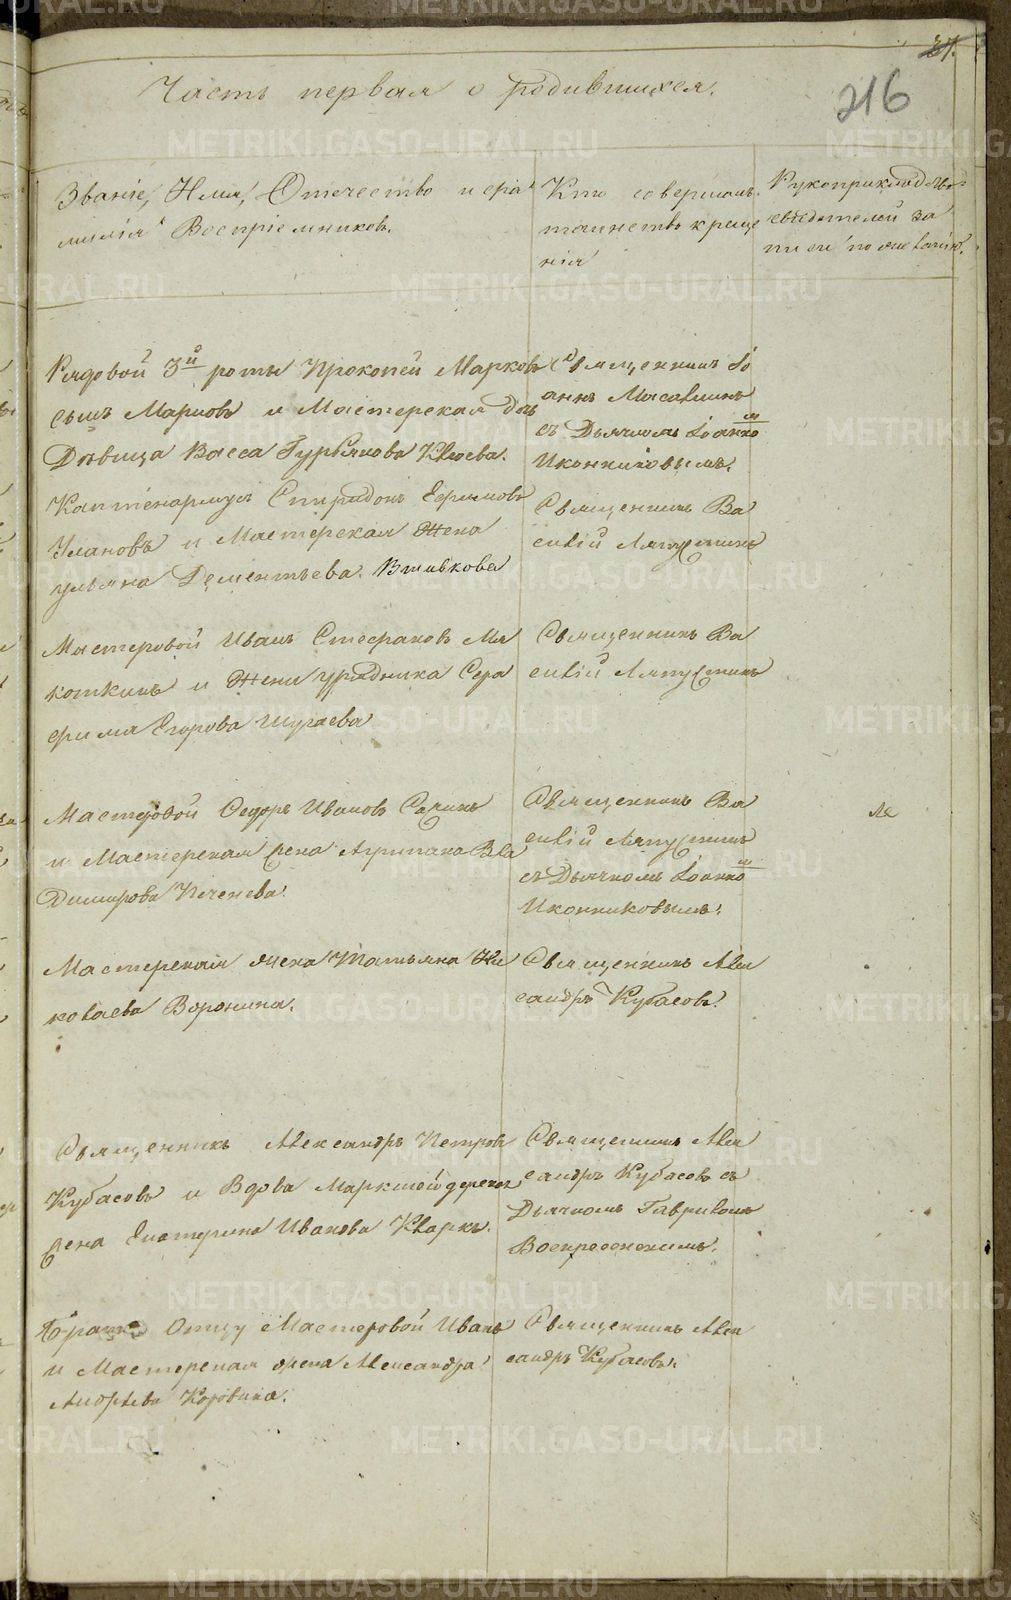 37.
216
Часть первая о родившихся.
Званіе, Имя, Отечество и фа
милія Воспріемниковъ.
Кто совершалъ
таинство креще
нія
Рукоприкладство
свѣдетелей за
писи по желанію.
Рядовой 3й роты Прокопей Марковъ
сынъ Марковъ и Мастерская дочь
Дѣвица Васса Гурьянова Клюева.
Священникъ Іо
аннъ
съ Дьячкомъ Іоанно
м
Иконниковымъ.
Каптенармусъ Спиридонъ Ефимовъ
Улановъ и Мастерская Жена
ульяна Дементьева. Втивкова
Священникъ Ва
силій Ляпустинъ
Мастеровой Иванъ Стефановъ Мя
коткинъ и Жена урядника Сера
фима Егорова Шугаева
Священникъ Ва
силій Ляпустинъ
Мастеровой Федоръ Ивановъ
и Мастерская жена Агрипина Вла
димирова Печенева.
Священникъ Ва
силій Ляпустинъ
съ Дьячкомъ Іоанно
м
Иконниковымъ.
Мастерская жена Татьяна Ни
колаева Воронина.
Священникъ Алек
сандръ Кубасовъ.
Священникъ Александръ Петровъ
Кубасовъ и Вдова
жена Екатерина Иванова Кларкъ.
Священникъ Алек
сандръ Кубасовъ съ
Дьячкомъ Гавриломъ
Воскресенскимъ.
Отцу Мастеровой Иванъ
и Мастерская жена Александра
Андрѣева Коровина.
Священникъ Алек
сандръ Кубасовъ.
METRIKI.GASO-URAL.RU